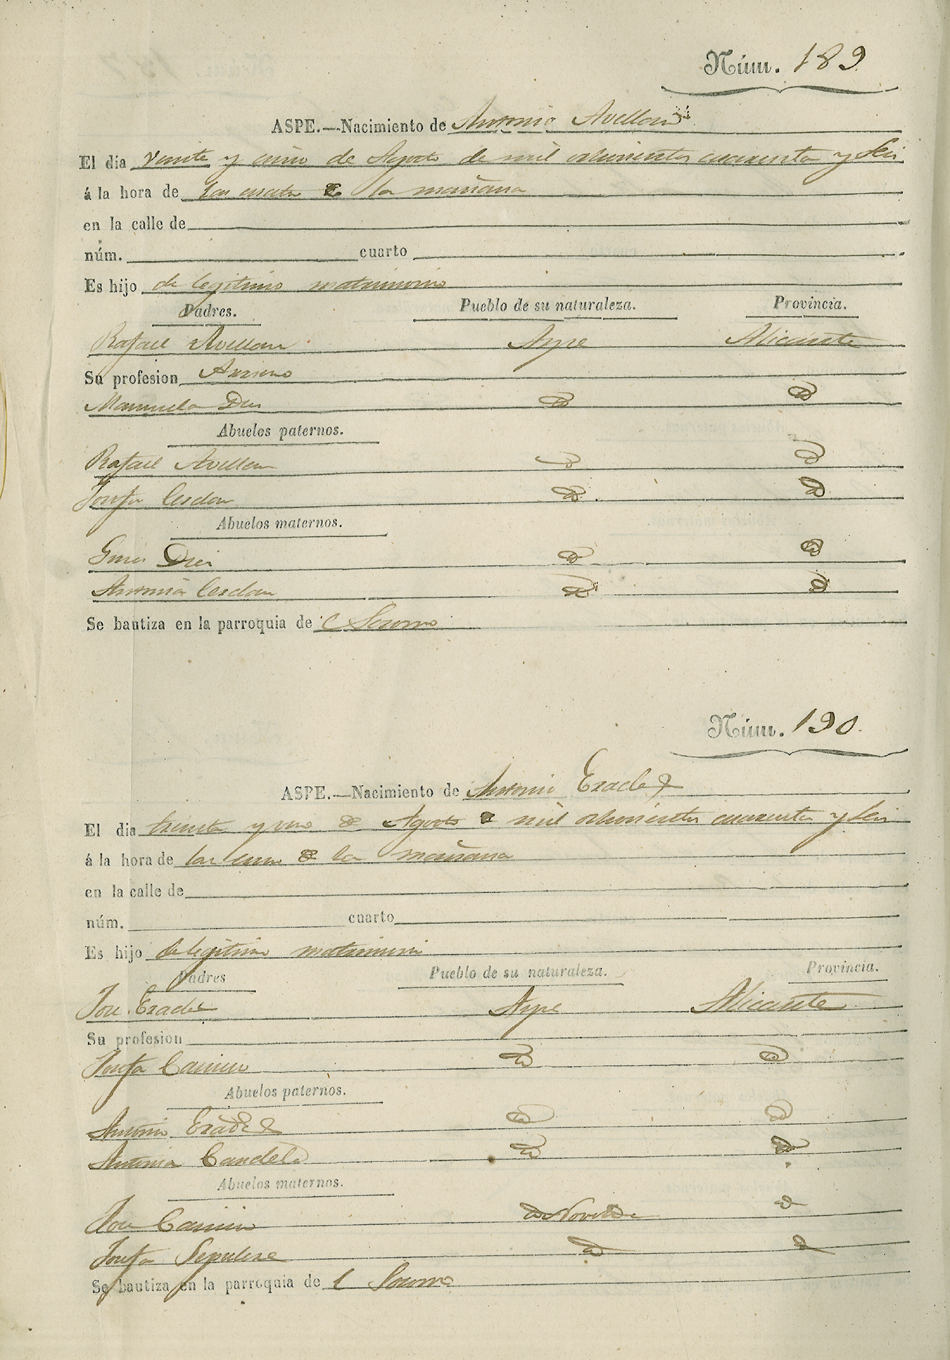 Núm. 189
ASPE.—Nacimiento de Antonio Avellan
El dia veinte y cinco de Agosto de mil ochocientos cuarenta y seis
á la hora de las cuatro de la mañana
en la calle de
núm. cuarto
Es hijo de legitimo matrimonio
Padres. Pueblo de su naturaleza. Provincia.
Rafael Avellan Aspe Alicante
Su profesion Arriero
Manuela Diez
Abuelos paternos.
Rafael Avellan
Josefa Cerdan
Abuelos maternos.
Gines Diez
Antonia Cerdan
Se bautiza en la parroquia de el Socorro
Núm. 190.
ASPE.—Nacimiento de Antonio
El dia treinta y uno de Agosto de mil ochocientos cuarenta y seis
á la hora de las de la mañana
en la calle de
núm. cuarto
Es hijo de legitimo matrimonio
Padres Pueblo de su naturaleza. Provincia.
Jose Aspe Alicante
Su profesion
Josefa
Abuelos paternos.
Antonio
Antonia Candela
Abuelos maternos.
Jose Novelda
Josefa Sepulcre
Se bautiza en la parroquia de el Socorro